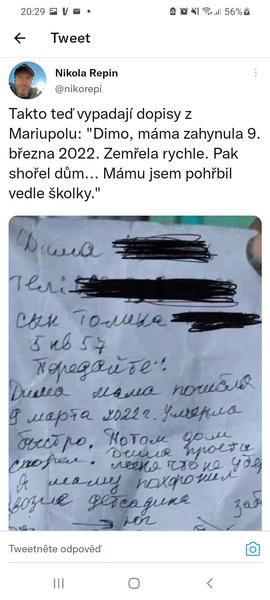 20:29
56%
Tweet
Nikola Repin
@nikorepi
Takto teď vypadají dopisy z
Mariupolu: "Dimo, máma zahynula 9.
března 2022. Zemřela rychle. Pak
shořel dům... Mámu jsem pohřbil
vedle školky."
Дима
Тел:
сын Толика
5 кв 57
Передайте!
Дима мама погибла
9 марта 2022г. Умерла
быстро. Потом дом
сгорел. Дима прости
меня что не убер
Я маму похоронил
возле детсадика
Tweetněte odpověď